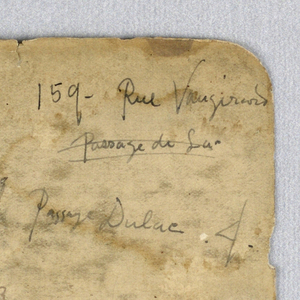 159- Rue Vaugirard
Passage du Su
Passage Dulac 4